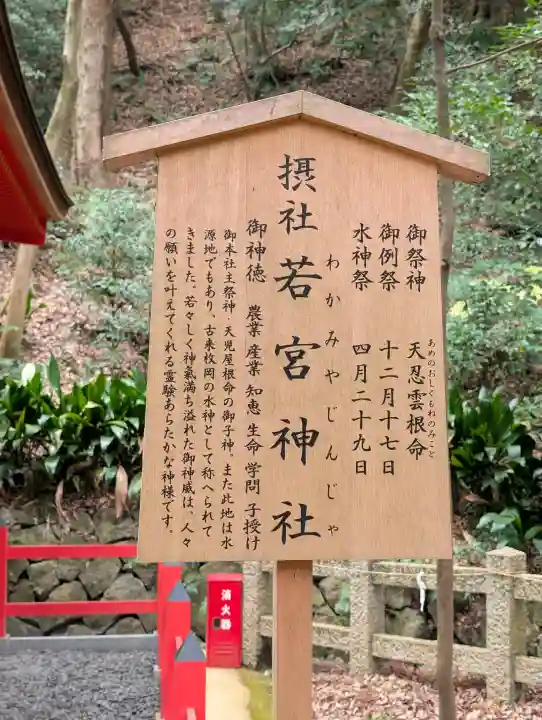 御祭神 天忍雲根命
あめのおしくもねのみこと
御例祭 十二月十七日
水神祭 四月二十九日
わかみやじんじゃ
摂社若宮神社
御神徳 農業 産業 知恵 生命 学問 子授け
御本社主祭神・天児屋根命の御子神、また此地は水
源地でもあり、古来枚岡の水神として称へられて
きました。若々しく神氣満ち溢れた御神威は、人々
の願いを叶えてくれる霊験あらたかな神様です。
消火器